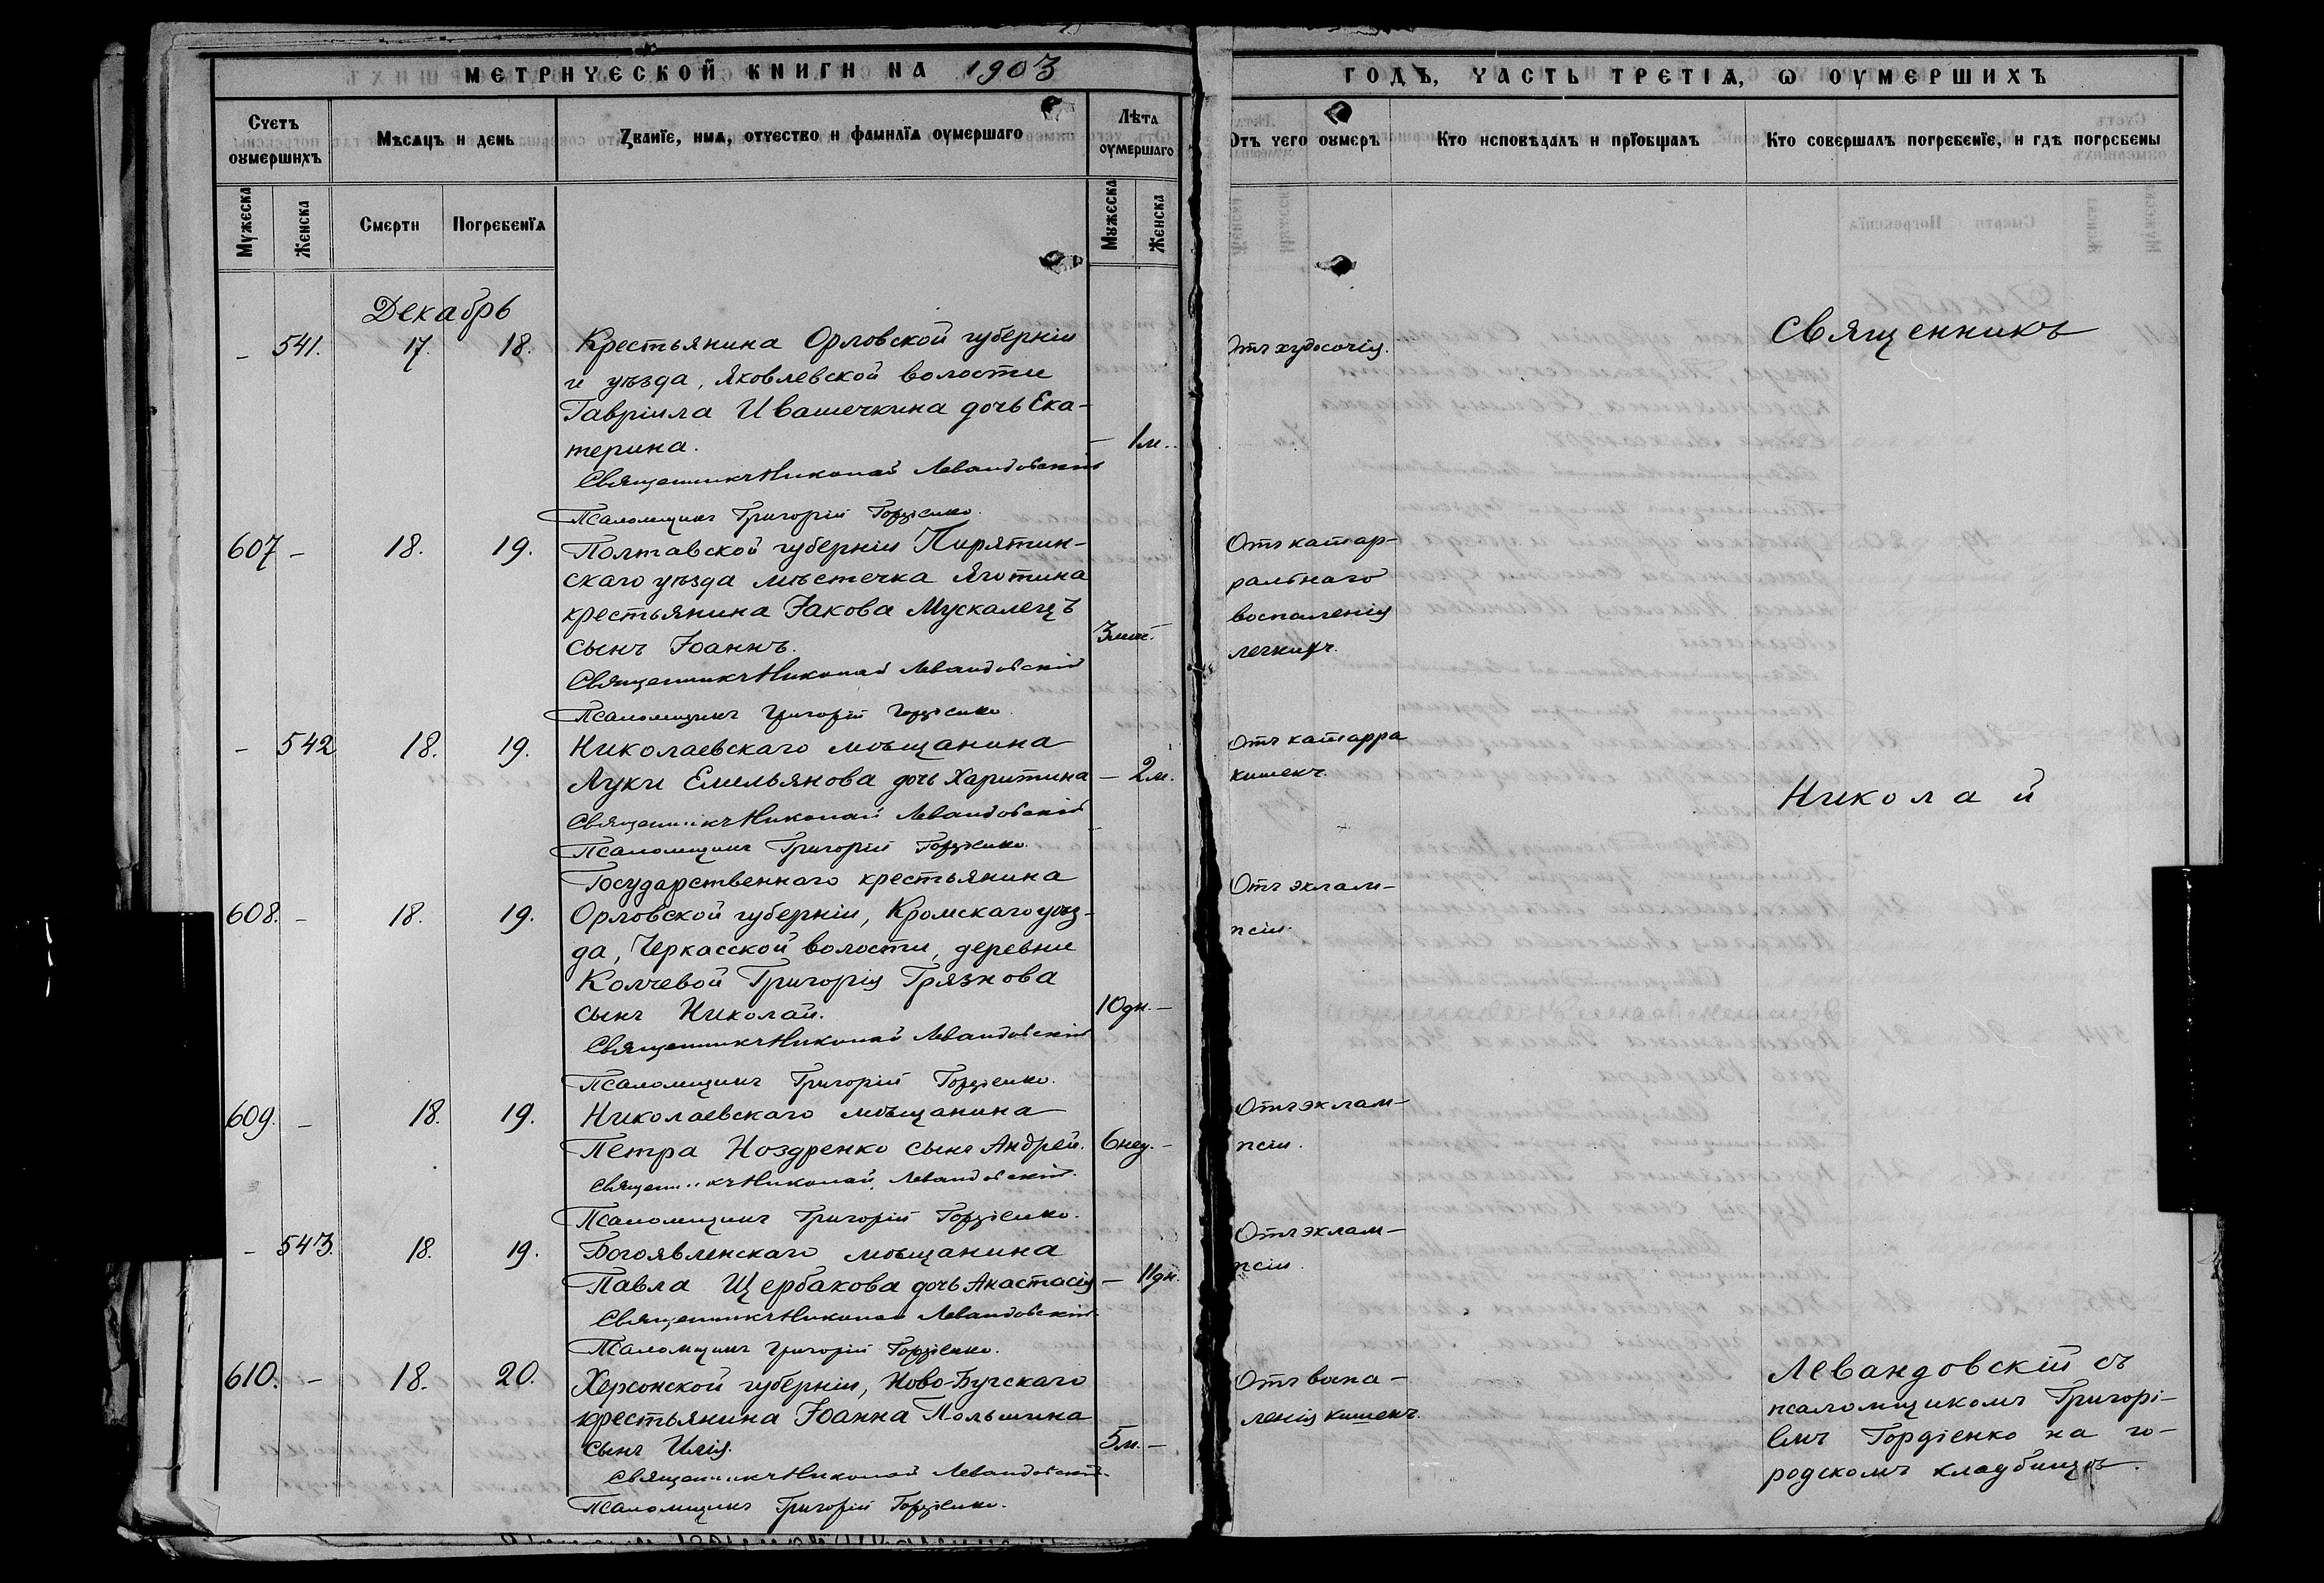 МЕТРИЧЕСКОЙ КНИГИ НА 1903
Счетъ оумершихъ
Мѣсяцъ и день
Званіе, имя, отчество и фамилія оумершаго
Лѣта оумершаго
Мужеска
Женска
Смерти
Погребенія
Мужеска
Женска
Декабрь
- 541. 17. 18. Крестьянина Орловской губерніи
и уѣзда, Яковлевской волости
Гавріила Ивашечкина дочь Ека-
терина. - 1 м.
Священникъ Николай Левандовскій
Псаломщикъ Григорій Гордіенко.
607 - 18. 19. Полтавской губерніи Пирятин-
скаго уѣзда мѣстечка Яготина
крестьянина Іакова Мускалецъ
сынъ Іоаннъ. 3 мѣс. -
Священникъ Николай Левандовскій
Псаломщикъ Григорій Гордіенко
- 542 18. 19. Николаевскаго мѣщанина
Луки Емельянова дочь Харитина - 2 м.
Священникъ Николай Левандовскій
Псаломщикъ Григорій Гордіенко.
Государственнаго крестьянина
608. - 18. 19. Орловской губерніи, Кромскаго уѣз-
да, Черкасской волости, деревни
Колчевой Григорія Грязнова
сынъ Николай. 10 дн. -
Священникъ Николай Левандовскій
Псаломщикъ Григорій Гордіенко.
609. - 18. 19. Николаевскаго мѣщанина
Петра Ноздренко сынъ Андрей. 6 нед. -
Священникъ Николай Левандовскій.
Псаломщикъ Григорій Гордіенко.
- 543. 18. 19. Богоявленскаго мѣщанина
Павла Щербакова дочь Анастасія - 11 дн.
Священникъ Николай Левандовскій.
Псаломщикъ Григорій Гордіенко.
610. - 18. 20. Херсонской губерніи, Ново-Бугскаго
крестьянина Іоанна Мольшина
сынъ Илія. 5 м. -
Священникъ Николай Левандовскій.
Псаломщикъ Григорій Гордіенко.
ГОДЪ, ЧАСТЬ ТРЕТІЯ, Ѡ ОУМЕРШИХЪ
Отъ чего оумеръ
Кто исповѣдалъ и пріобщалъ
Кто совершалъ погребеніе, и гдѣ погребены
Отъ худосочія.
Отъ катар-
ральнаго
воспаленія
легкихъ.
Отъ катарра
кишекъ.
Отъ эклам-
псіи.
Отъ эклам-
псіи.
Отъ эклам-
псіи.
Отъ воспа-
ленія кишекъ.
Священникъ
Николай
Левандовскій съ
псаломщикомъ Григорі-
емъ Гордіенко на го-
родскомъ кладбищѣ.